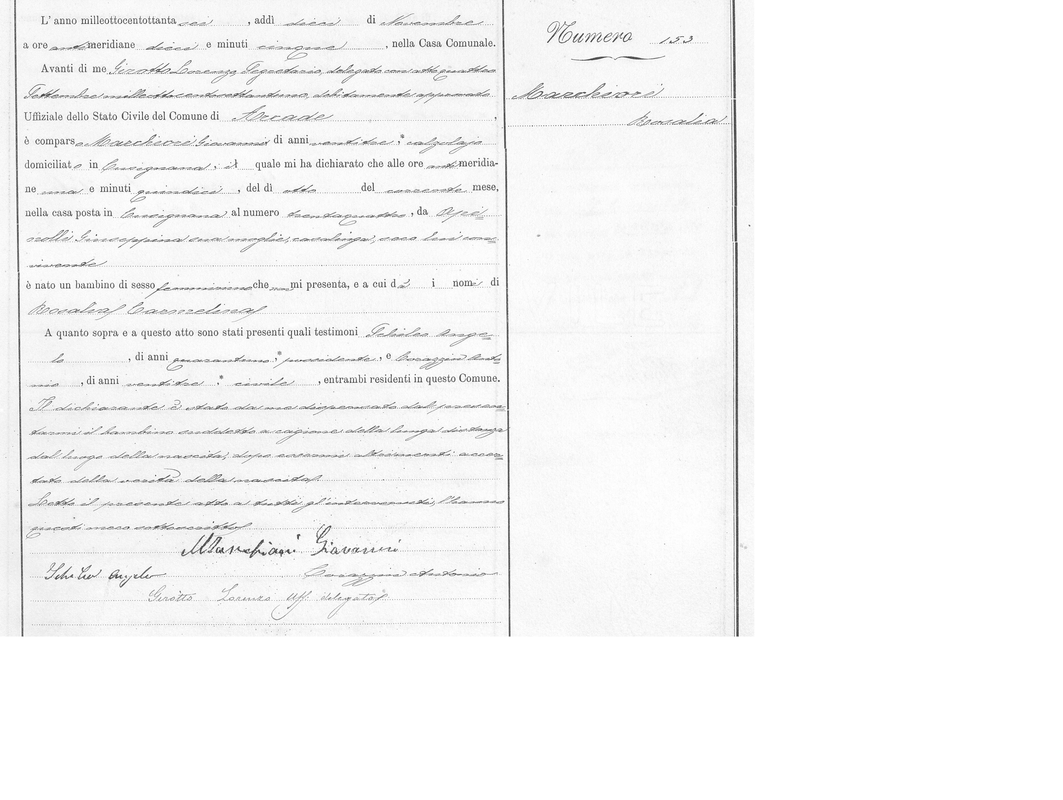 L'anno milleottocentottanta sei, addì dieci di Novembre
a ore antimeridiane dieci e minuti cinque, nella Casa Comunale.
Avanti di me Girotto Lorenzo Segretario, delegato con atto quattro
Settembre milleottocentottantuno, debitamente approvato
Uffiziale dello Stato Civile del Comune di Arcade,
è comparso Marchiori Giovanni di anni ventitre, calzolajo
domiciliato in Cusignana, il quale mi ha dichiarato che alle ore antimeridia-
ne una e minuti quindici, del dì otto del corrente mese,
nella casa posta in Cusignana al numero trentaquattro, da
Giuseppina sua moglie, casalinga, seco lui con=
vivente
è nato un bambino di sesso femminino che non mi presenta, e a cui dà i nomi di
Rosalia Carmelina
A quanto sopra e a questo atto sono stati presenti quali testimoni Schileo Ange=
lo, di anni quarantuno, possidente, e Corazzin Anto=
nio, di anni ventitre, civile, entrambi residenti in questo Comune.
Il dichiarante è stato da me dispensato dal presen=
tarmi il bambino suddetto a cagione della lunga distanza
dal luogo della nascita, dopo essermi altrimenti accer=
tato della verità della nascita.
Letto il presente atto a tutti gl'intervenuti, l'hanno
questi meco sottoscritto
Marchiori Giovanni
Schileo Angelo Corazzin Antonio
Girotto Lorenzo Uff. delegato
Numero 153
Marchiori
Rosalia